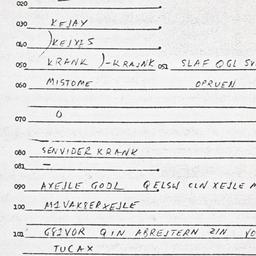 020
030 KEJAY
040 )KEJYIS
050 KRANK )-KRAJNK 051 SLAF OGL
060 MISTOME OPRUEN
070 0
080 SENVIDER KRANK
081 —
090 AXEJLE GODL QELSW CLN XEJLE
100 MIVAKBERXEJLE
101 GYIVOR QIN ABREJTERN ZIN
TUCAX